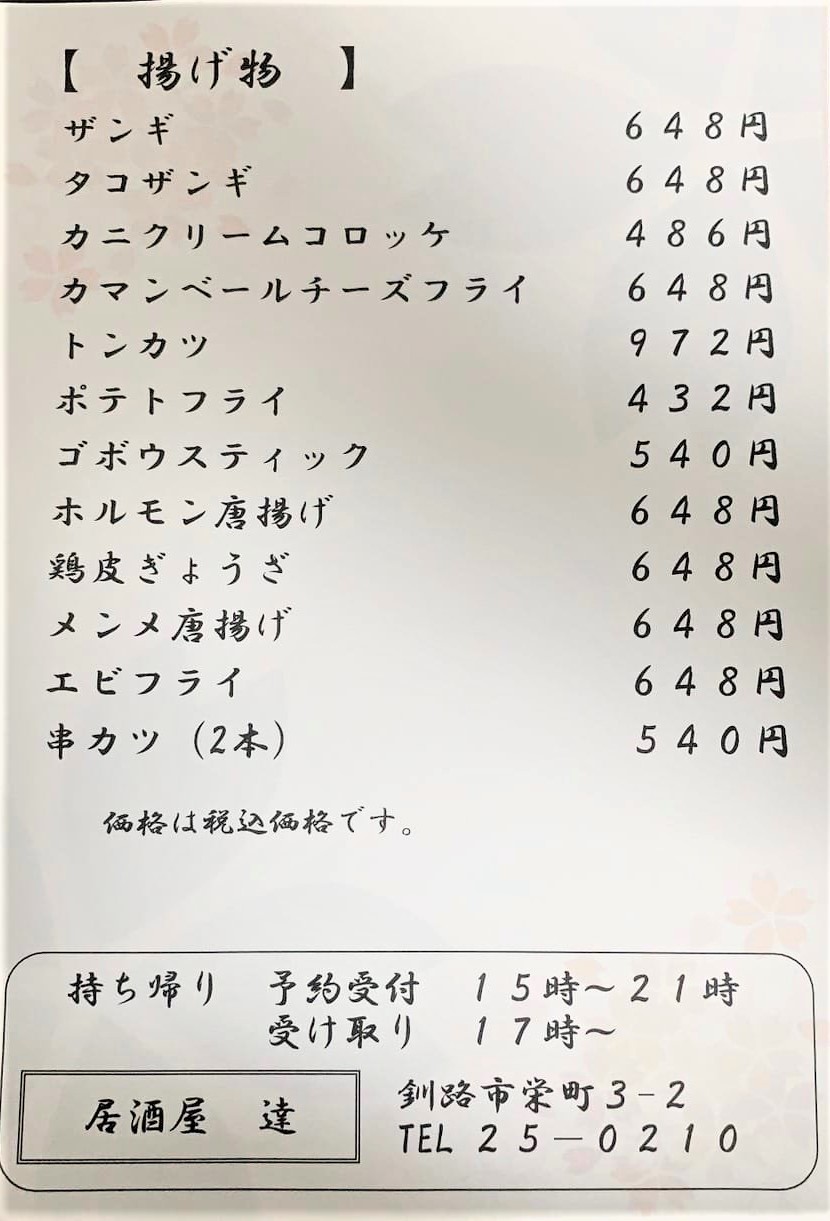 【　揚げ物　】
ザンギ　６４８円
タコザンギ　６４８円
カニクリームコロッケ　４８６円
カマンベールチーズフライ　６４８円
トンカツ　９７２円
ポテトフライ　４３２円
ゴボウスティック　５４０円
ホルモン唐揚げ　６４８円
鶏皮ぎょうざ　６４８円
メンメ唐揚げ　６４８円
エビフライ　６４８円
串カツ（2本）　５４０円
価格は税込価格です。
持ち帰り　予約受付　１５時～２１時
受け取り　１７時～
居酒屋　達
釧路市栄町３-２
TEL ２５―０２１０